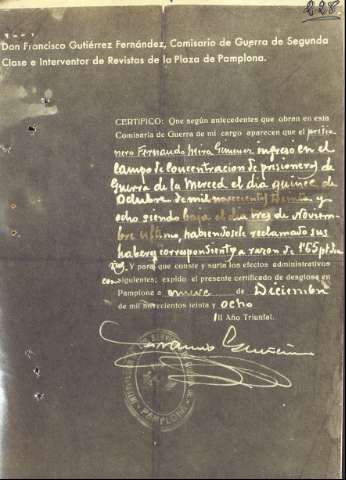 228.
Don Francisco Gutiérrez Fernández, Comisario de Guerra de Segunda
Clase e Interventor de Revistas de la Plaza de Pamplona.
CERTIFICO: Que según antecedentes que obran en esta
Comisaría de Guerra de mi cargo aparecen que el prisio
nero Fernando Meira Gimenez ingreso en el
Campo de Concentracion de prisioneros de
Guerra de la Merced el dia quince de
Octubre de mil novecientos treinta y
ocho siendo baja el dia tres de Noviem-
bre ultimo, habiendosele reclamado sus
haberes correspondientes a razon de 1'65 ptas
Y para que conste y surta los efectos administrativos
con siguientes; expido el presente certificado de desglose en
Pamplona a nueve de Diciembre
de mil novecientos treinta y ocho
III Año Triunfal.
PAMPLONA